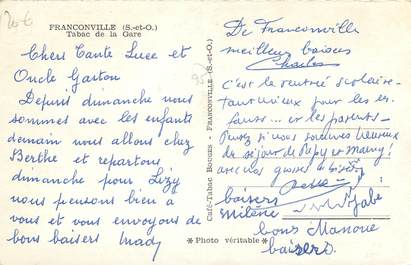 20€
FRANCONVILLE (S.-et-O.)
Tabac de la Gare
Chers Tante Luce et
Oncle Gaston
Depuis dimanche nous
sommes avec les enfants
demain nous allons chez
Berthe et repartons
dimanche pour Lizy
nous pensons bien à
vous et vous envoyons de
bons baisers Mady
Café-Tabac BOUGES — FRANCONVILLE (S.-et-O.)
De Franconville
meilleurs baisers
Charles
C'est la rentrée scolaire
pour les en-
fants ... et les parents -
Pensez si nous sommes heureux
du séjour de Papy et Mamy !
avec nos grosses bises
baisers
Milène
Gabe
bons
baisers
* Photo véritable *